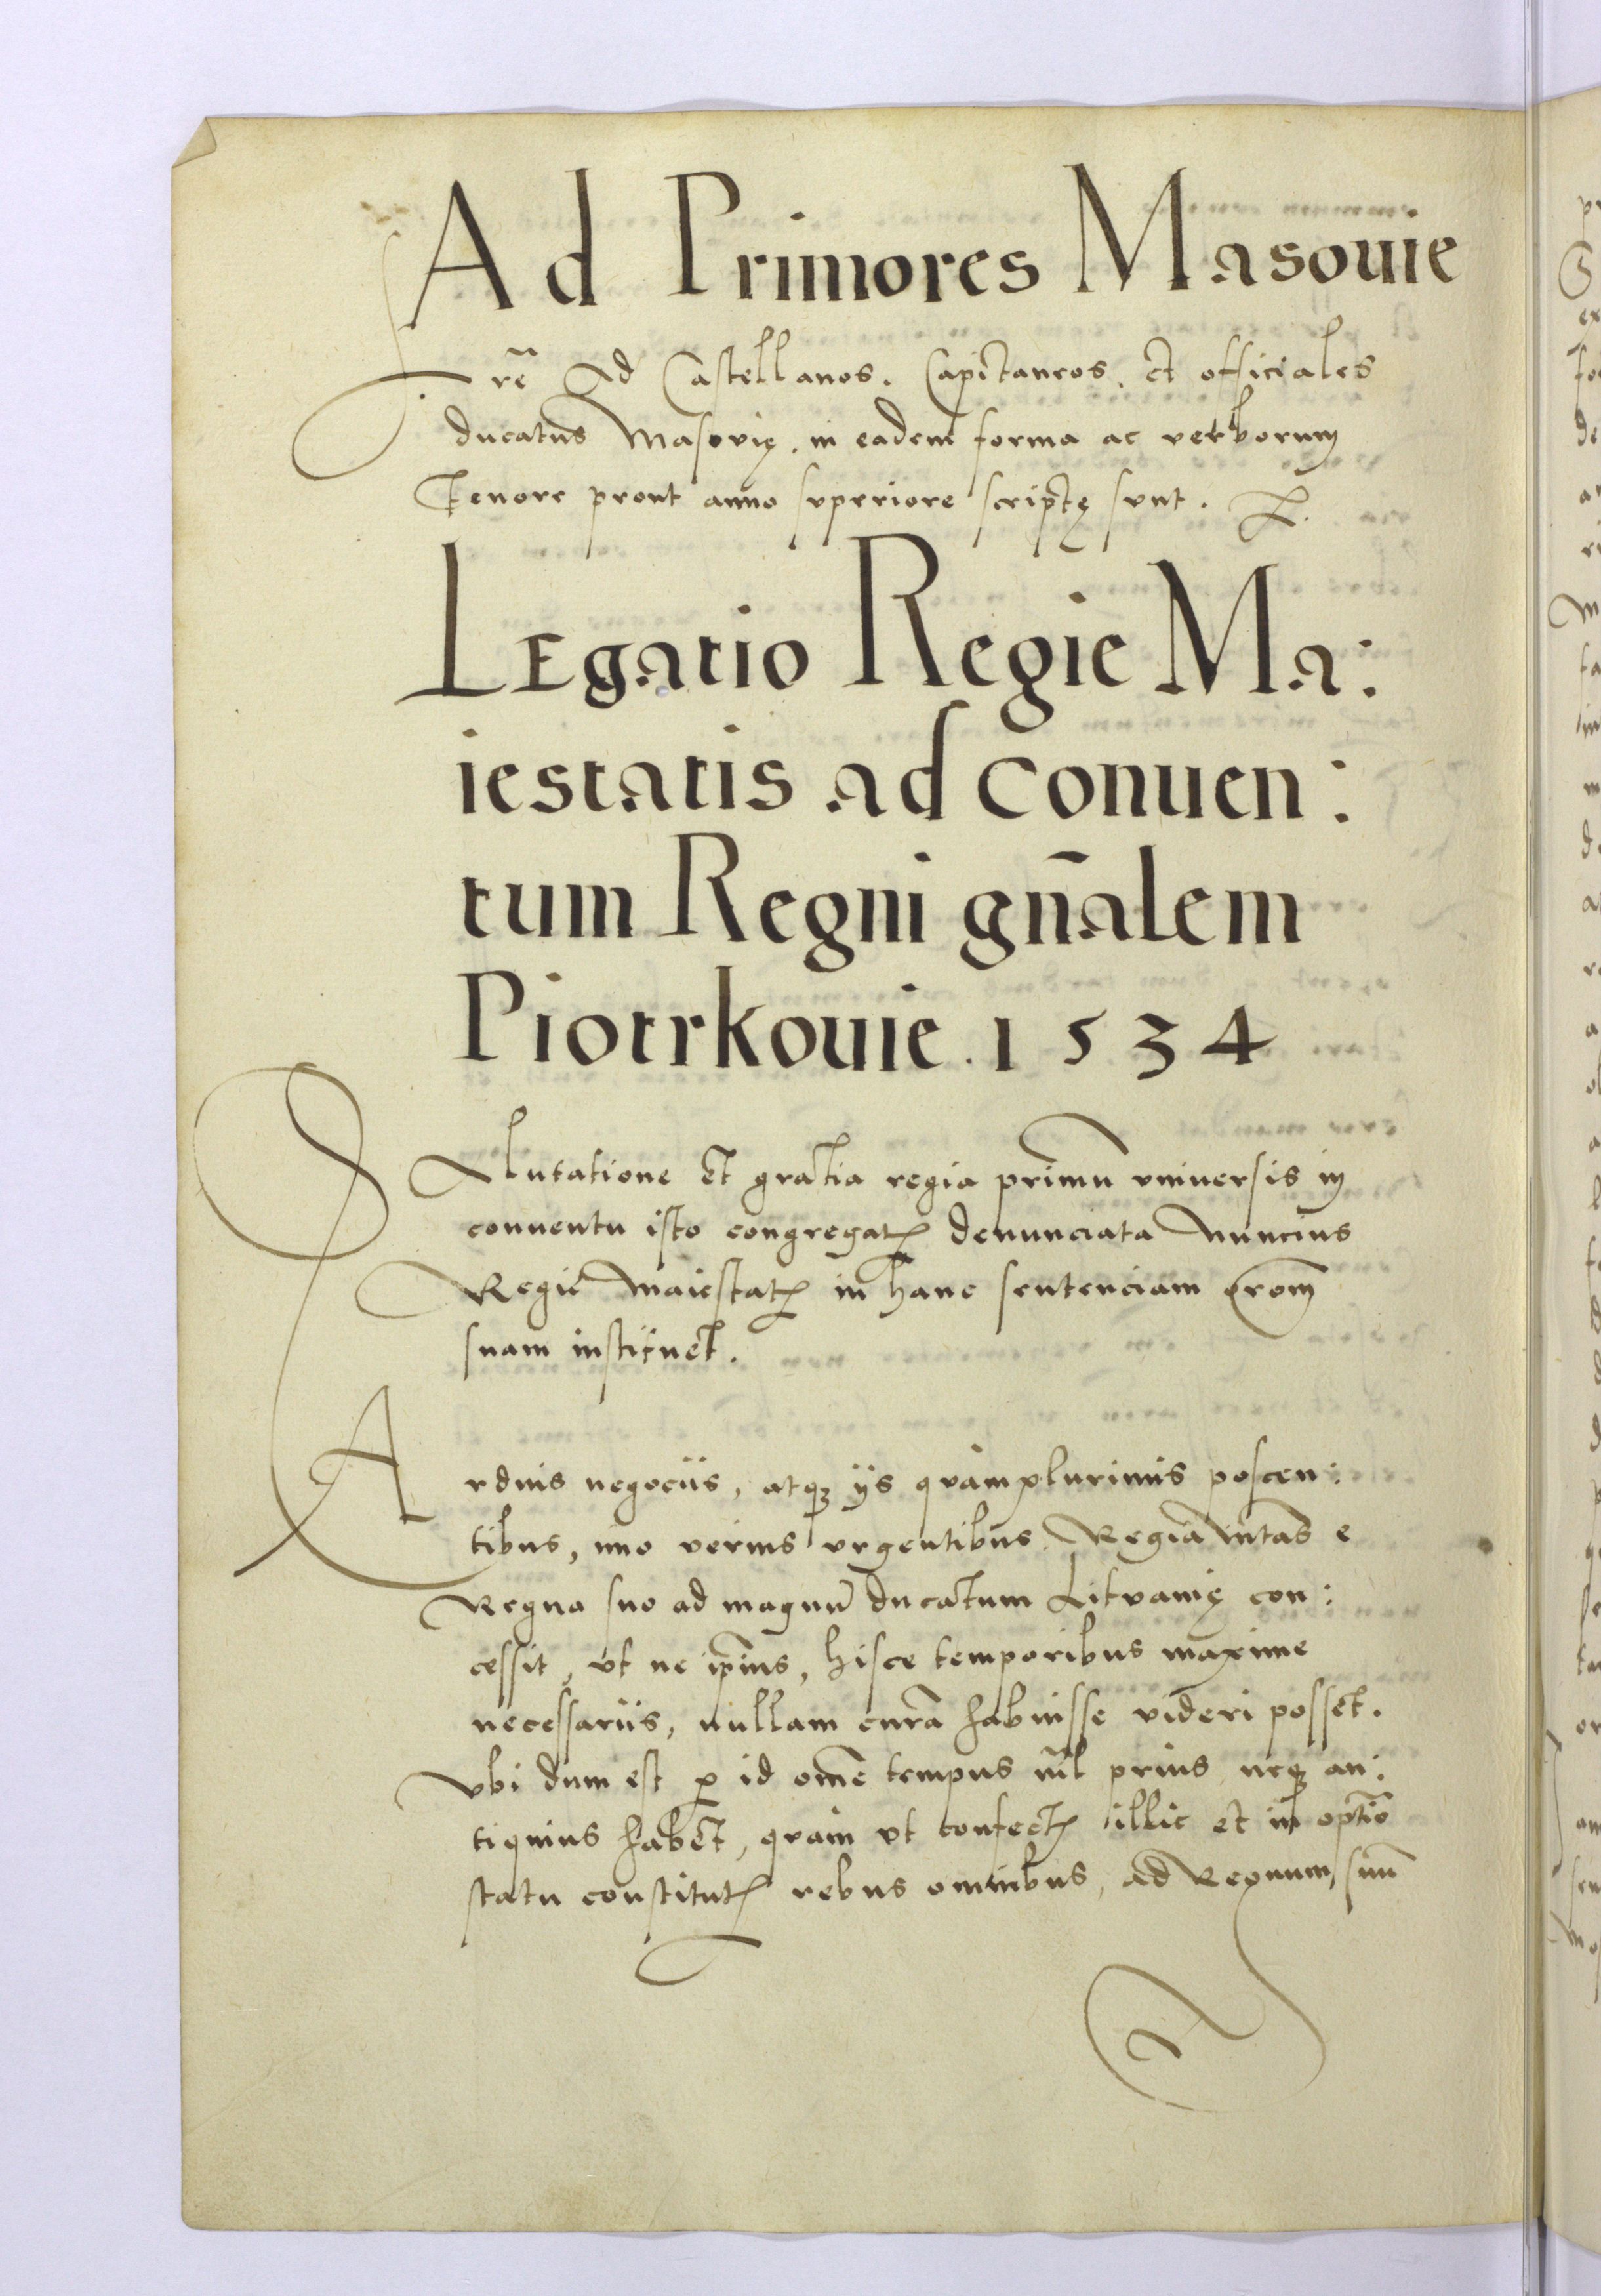 Ad Primores Masouie
Lrē Ad Castellanos. Capitaneos. et officiales
ducatus Masovię. in eadem forma ac verborum
Tenore prout anno svperiore scriptę svnt.
Legatio Regie Ma:
iestatis ad conuen:
tum Regni gn̄alem
Piotrkouie. 1534
SAlutatione et gratia regia primū vniuersis in
conuentu isto congregatꝭ denunciata Nuncius
Regie Maiestatꝭ in hanc sentenciam orōm
suam instituet.
Arduis negociis, atqꝫ ijs qvamplurimis poscen:
tibus, imo verius vrgentibus Regia mtas e
Regno suo ad magnū ducatum Litvanię con:
cessit, vt ne ipīus, hisce temporibus maxime
necessariis, nullam curā habuisse videri posset.
Vbi dum est ꝑ id om̄e tempus nīl prius neqꝫ an:
tiquius habet, qvam vt confectꝭ illic et in optīo
statu constitutꝭ rebus omnibus, ad Regnum suū